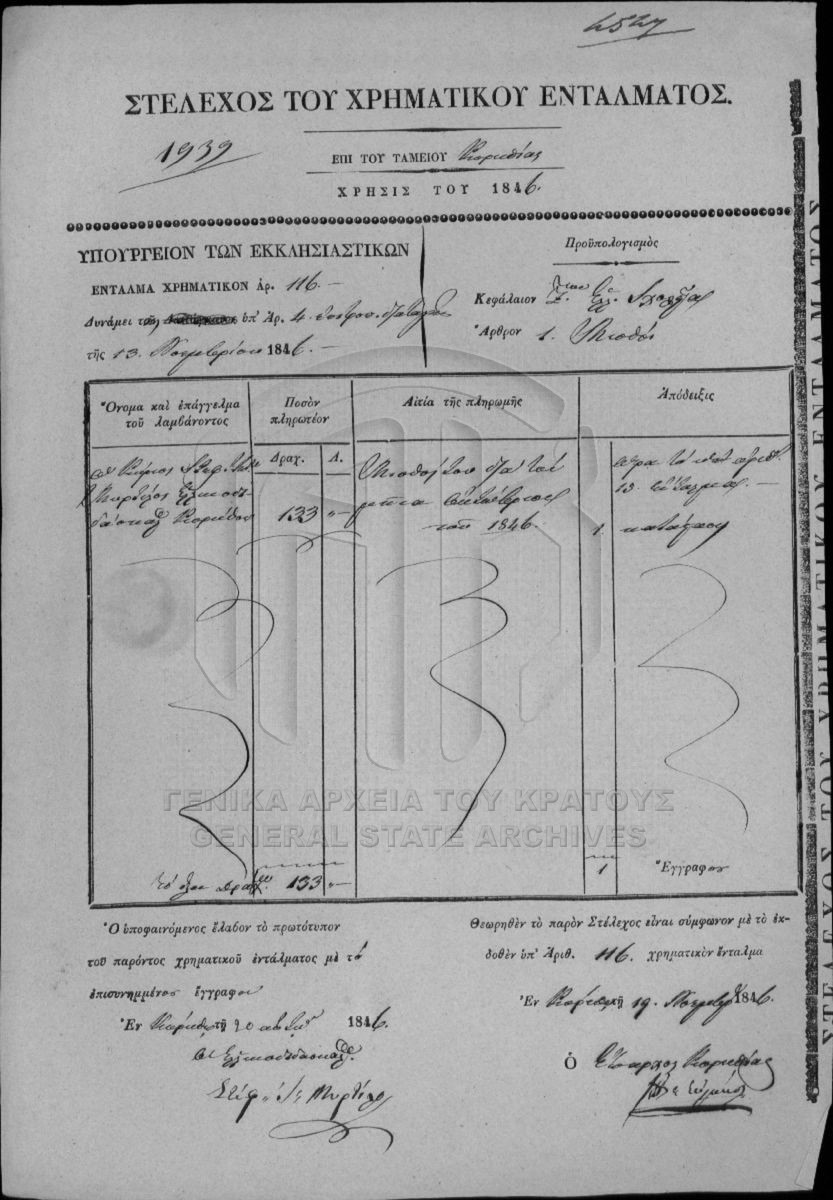 2527
ΣΤΕΛΕΧΟΣ ΤΟΥ ΧΡΗΜΑΤΙΚΟΥ ΕΝΤΑΛΜΑΤΟΣ.
1939
ΕΠΙ ΤΟΥ ΤΑΜΕΙΟΥ Κορινθίας
ΧΡΗΣΙΣ ΤΟΥ 1846.
ΥΠΟΥΡΓΕΙΟΝ ΤΩΝ ΕΚΚΛΗΣΙΑΣΤΙΚΩΝ
ΕΝΤΑΛΜΑ ΧΡΗΜΑΤΙΚΟΝ ἀρ. 116.–
Δυνάμει τῆς ὑπ' Ἀρ. 4
τῆς 13 Νοεμβρίου 1846.–
Προϋπολογισμὸς
Κεφάλαιον
Ἄρθρον 1. Μισθοὶ
Ὄνομα καὶ ἐπάγγελμα
τοῦ λαμβάνοντος
Ποσὸν
πληρωτέον
Αἰτία τῆς πληρωμῆς
Ἀπόδειξις
Δραχ. Λ.
Ὁ Κύριος
133 "–
Μισθός του διὰ τὸν
μῆνα Ὀκτώβριον
τοῦ 1846.
1.
Τὸ ὅλον Δραχ. 133 "–
1 Ἔγγραφον
Ὁ ὑποφαινόμενος ἔλαβον τὸ πρωτότυπον
τοῦ παρόντος χρηματικοῦ ἐντάλματος μὲ τὸ
ἐπισυνημμένον ἔγγραφον
Ἐν Κορίνθῳ τῇ 20 1846.
Ὁ Ἑλληνοδιδάσκαλος
Θεωρηθὲν τὸ παρὸν Στέλεχος εἶναι σύμφωνον μὲ τὸ ἐκ-
δοθὲν ὑπ' Ἀριθ. 116. χρηματικὸν ἔνταλμα
Ἐν Κορίνθῳ τῇ 19. Νοεμβρ. 1846.
Ὁ Ἔπαρχος Κορινθίας
ΣΤΕΛΕΧΟΣ ΤΟΥ ΧΡΗΜΑΤΙΚΟΥ ΕΝΤΑΛΜΑΤΟΣ
ΓΕΝΙΚΑ ΑΡΧΕΙΑ ΤΟΥ ΚΡΑΤΟΥΣ
GENERAL STATE ARCHIVES